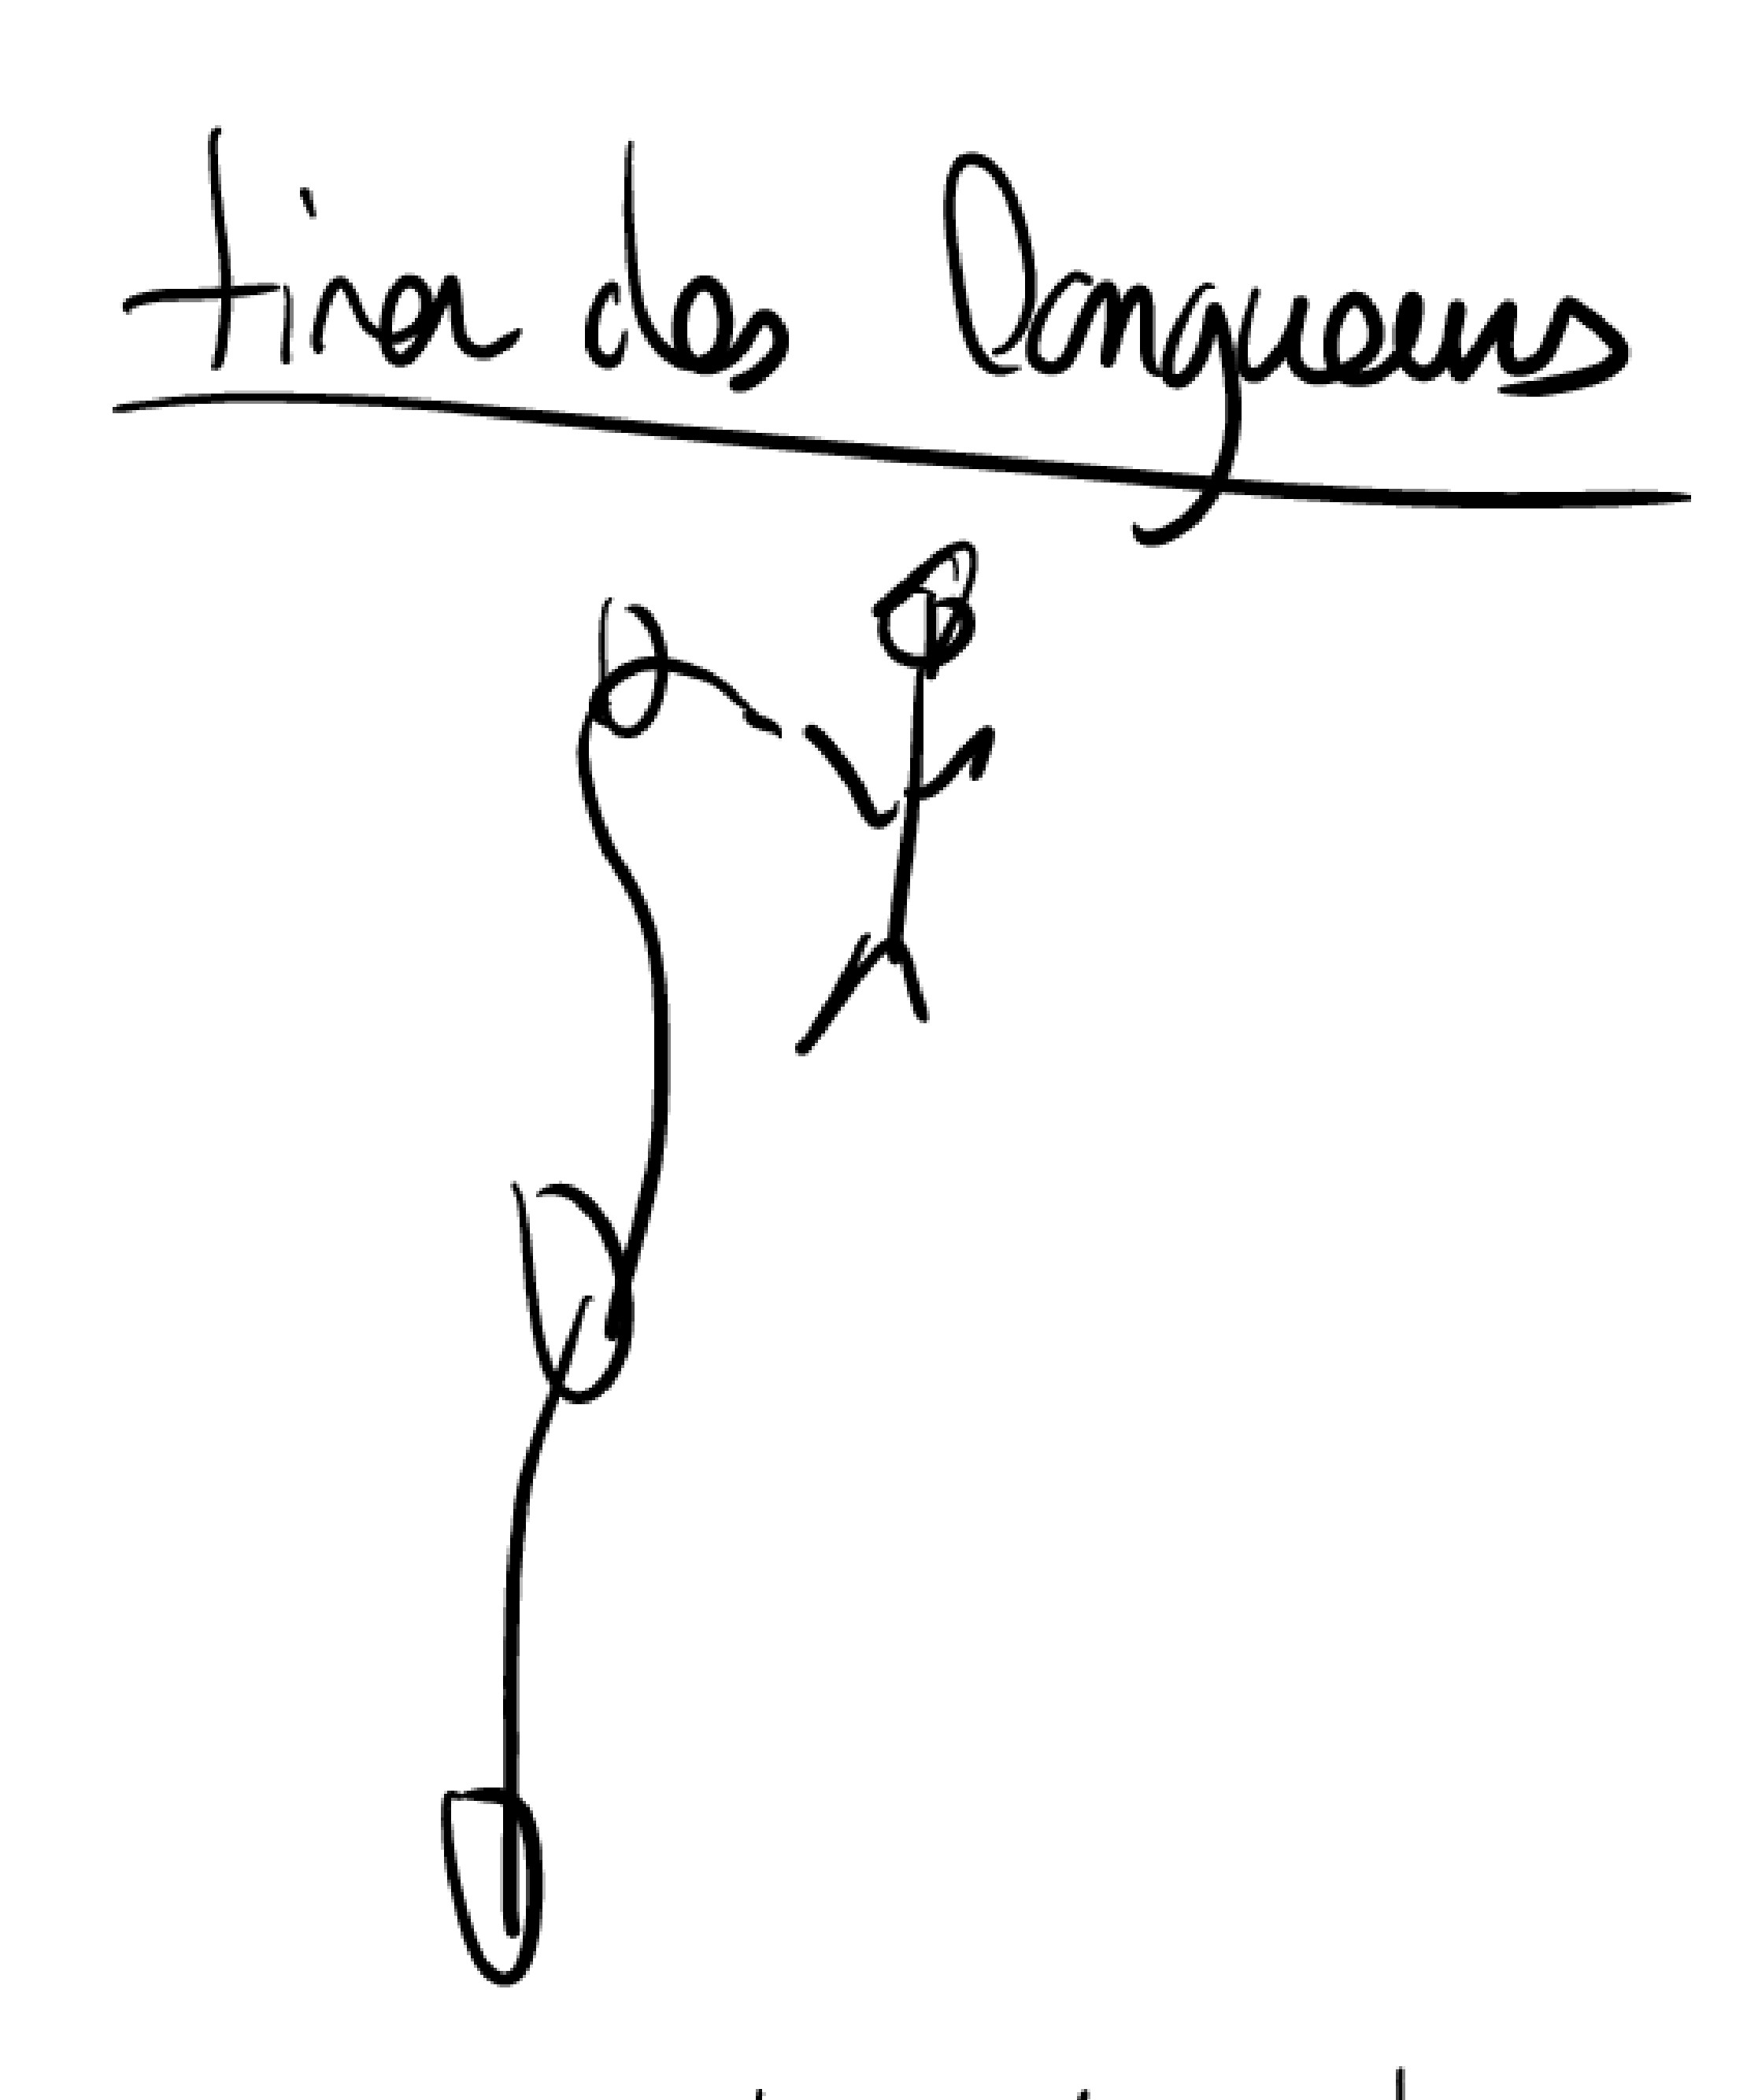 tirer des longueurs